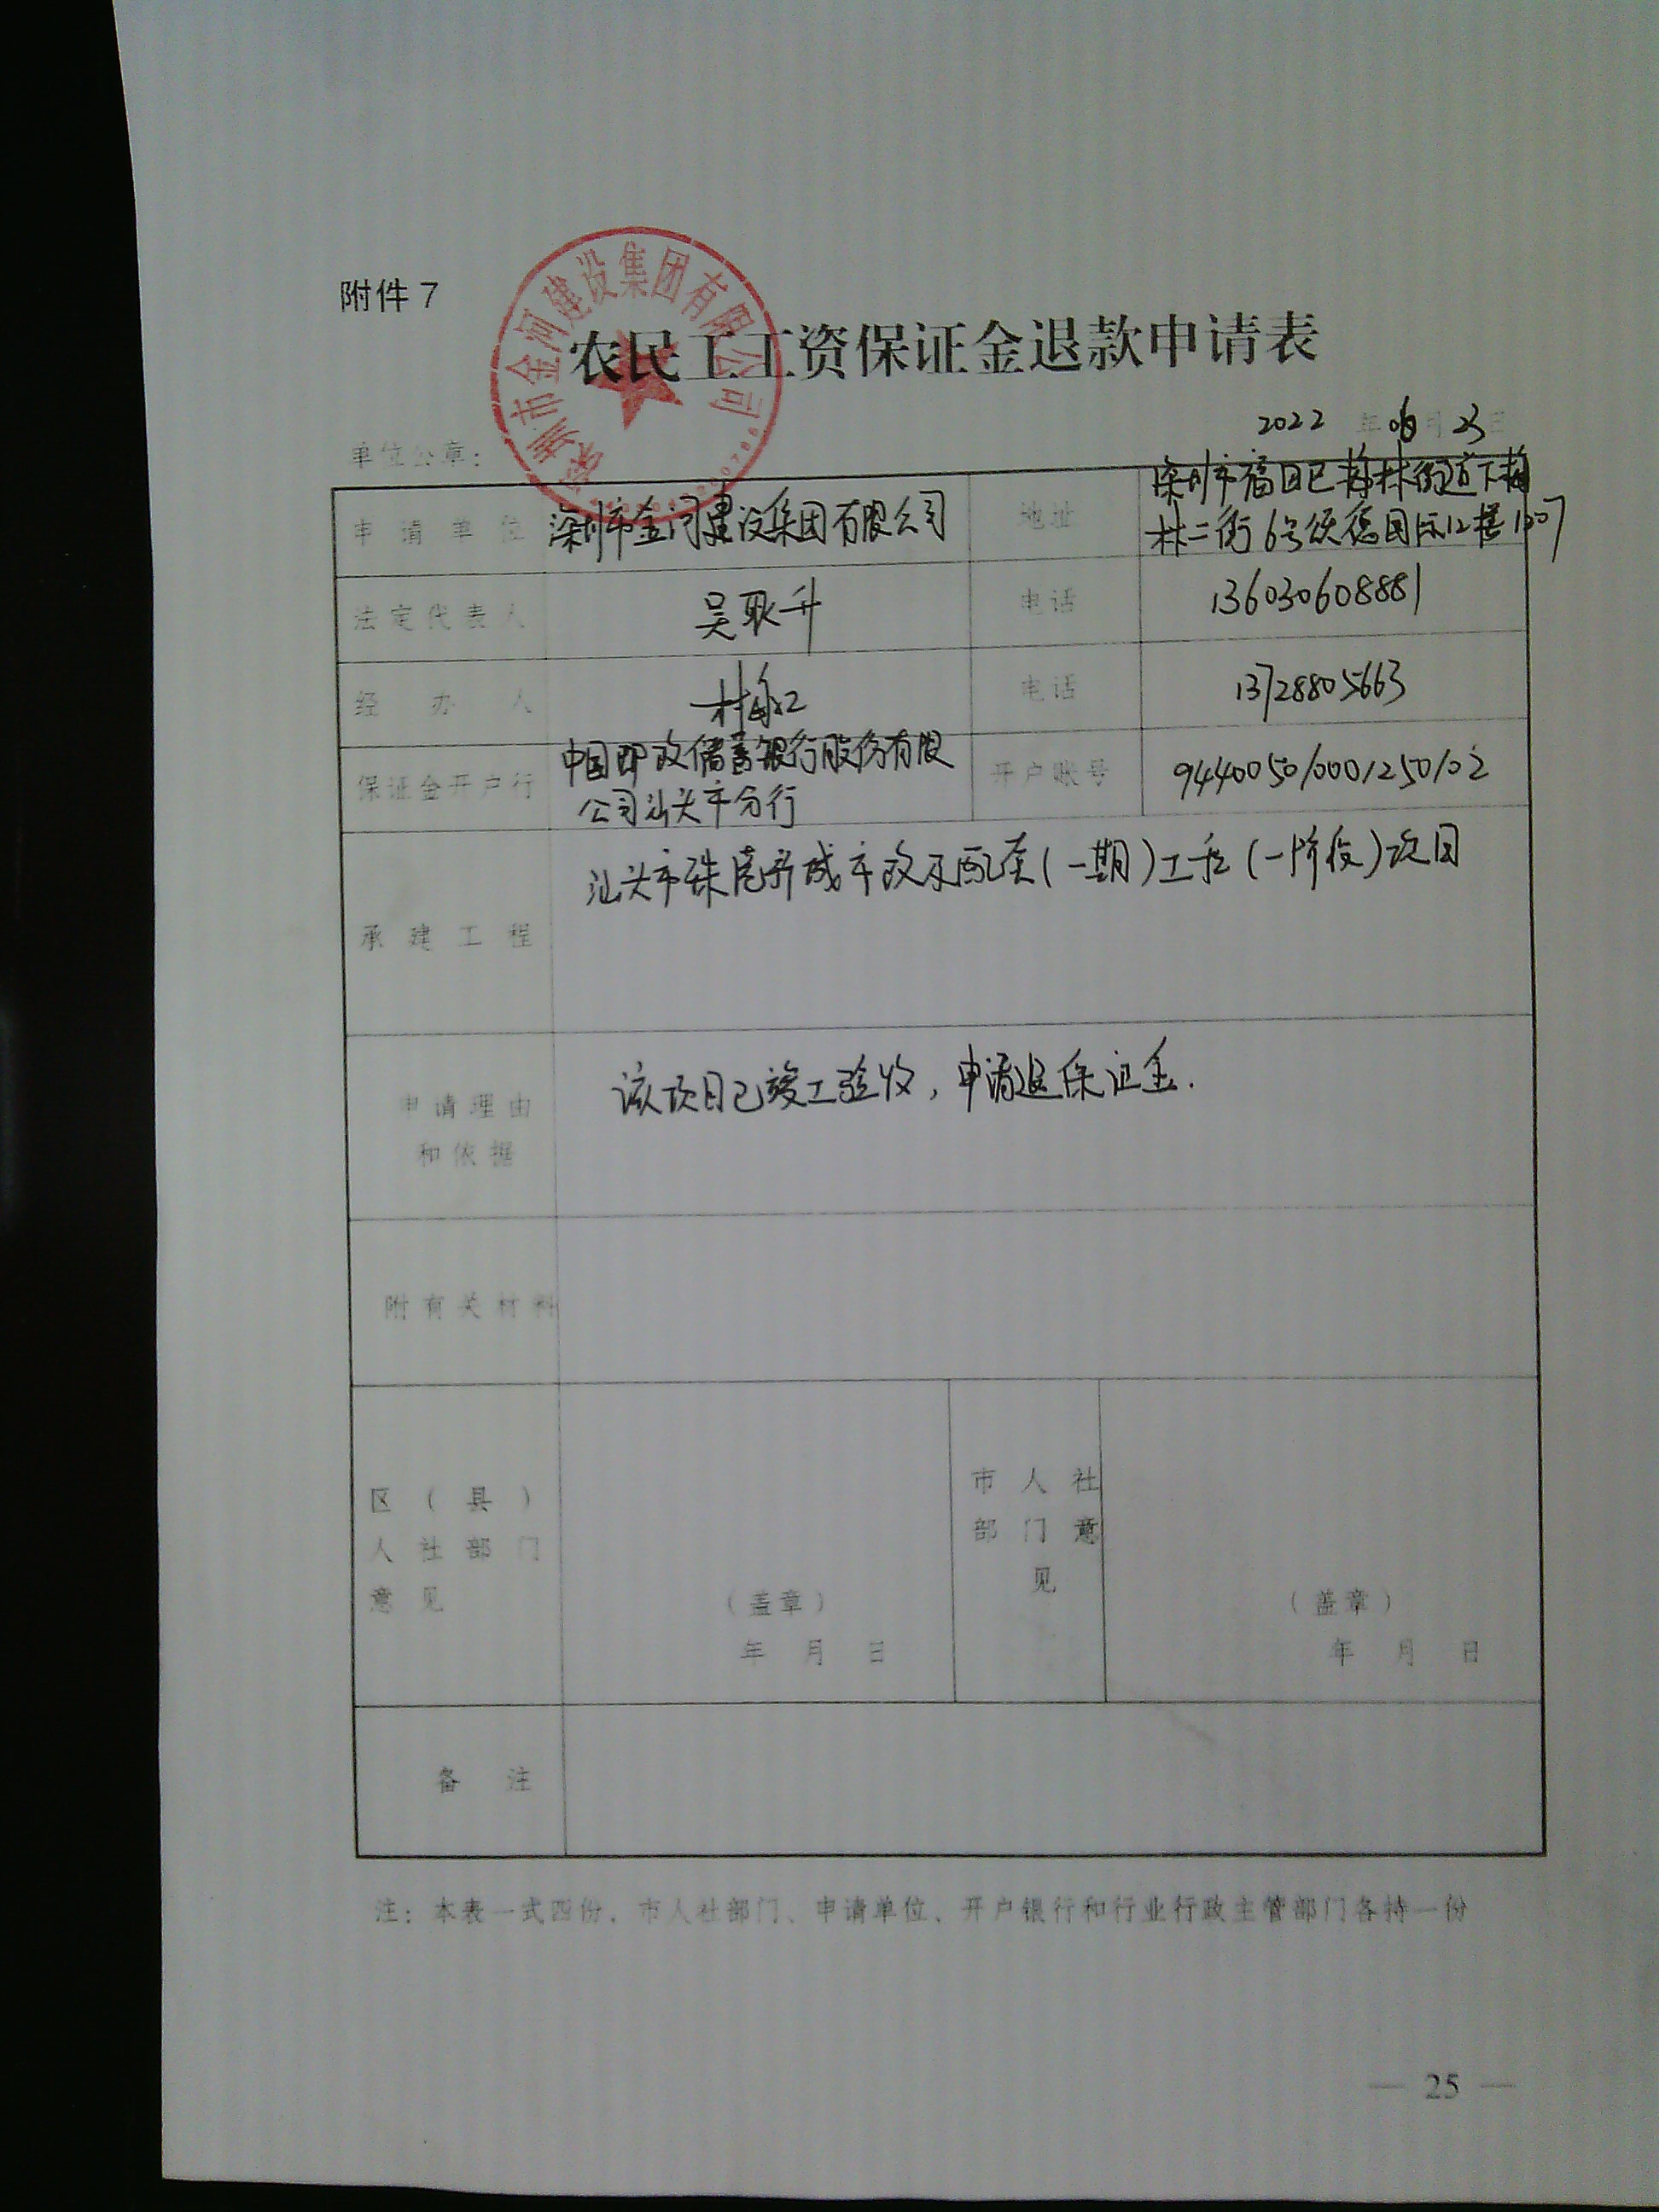 附件7
深圳市金河建设集团有限公司
农民工工资保证金退款申请表
2022年06月23日
单位公章：
申请单位 深圳市金河建设集团有限公司 地址 深圳市福田区梅林街道下梅
林二街6号颂德国际12楼1207
法定代表人 吴耿升 电话 136030608881
经办人 电话 13728805663
保证金开户行 中国邮政储蓄银行股份有限
公司汕头市分行
开户账号 944005010001250102
承建工程 汕头市珠港新城市政及配套(一期)工程(一阶段)项目
申请理由
和依据
该项目已竣工验收，申请退保证金.
附有关材料
区（县）
人社部门
意见
（盖章）
年 月 日
市人社
部门意
见
（盖章）
年 月 日
备注
注：本表一式四份，市人社部门、申请单位、开户银行和行业行政主管部门各持一份
— 25 —